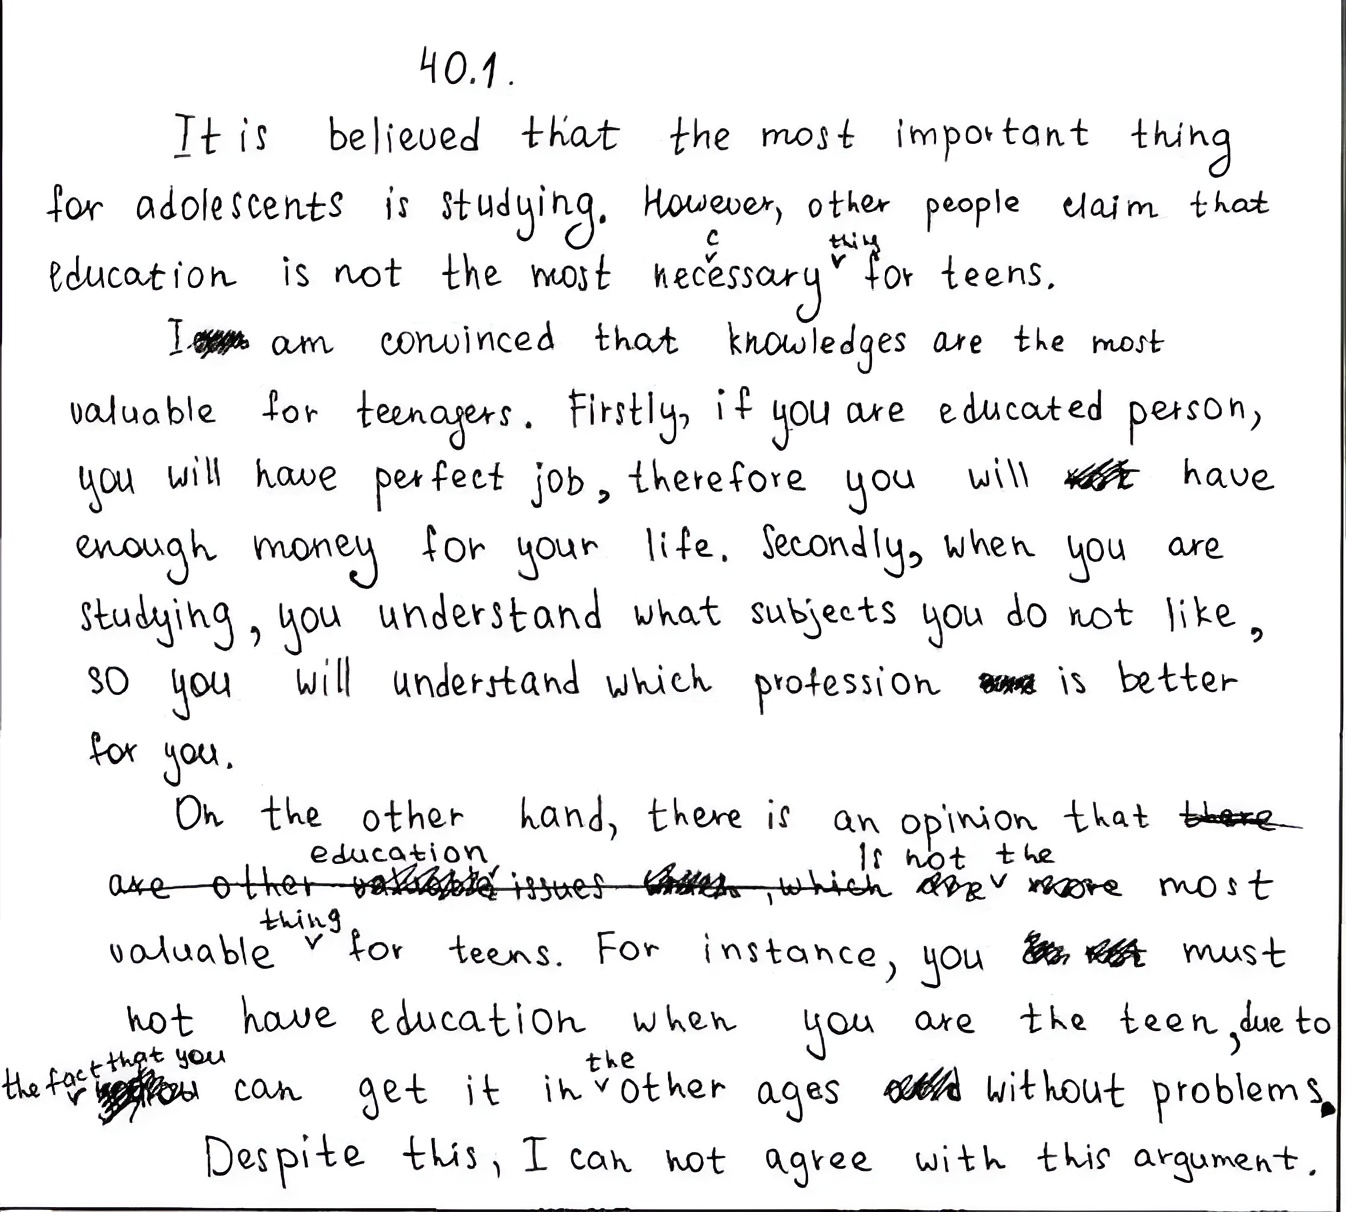 40.1.
It is believed that the most important thing
for adolescents is studying. However, other people claim that
education is not the most neccessary thing for teens.
I am convinced that knowledges are the most
valuable for teenagers. Firstly, if you are educated person,
you will have perfect job, therefore you will have
enough money for your life. Secondly, when you are
studying, you understand what subjects you do not like,
so you will understand which profession is better
for you.
On the other hand, there is an opinion that there
are other issues , which education is not the most
valuable thing for teens. For instance, you must
not have education when you are the teen, due to
the fact that you can get it in the other ages without problems.
Despite this, I can not agree with this argument.